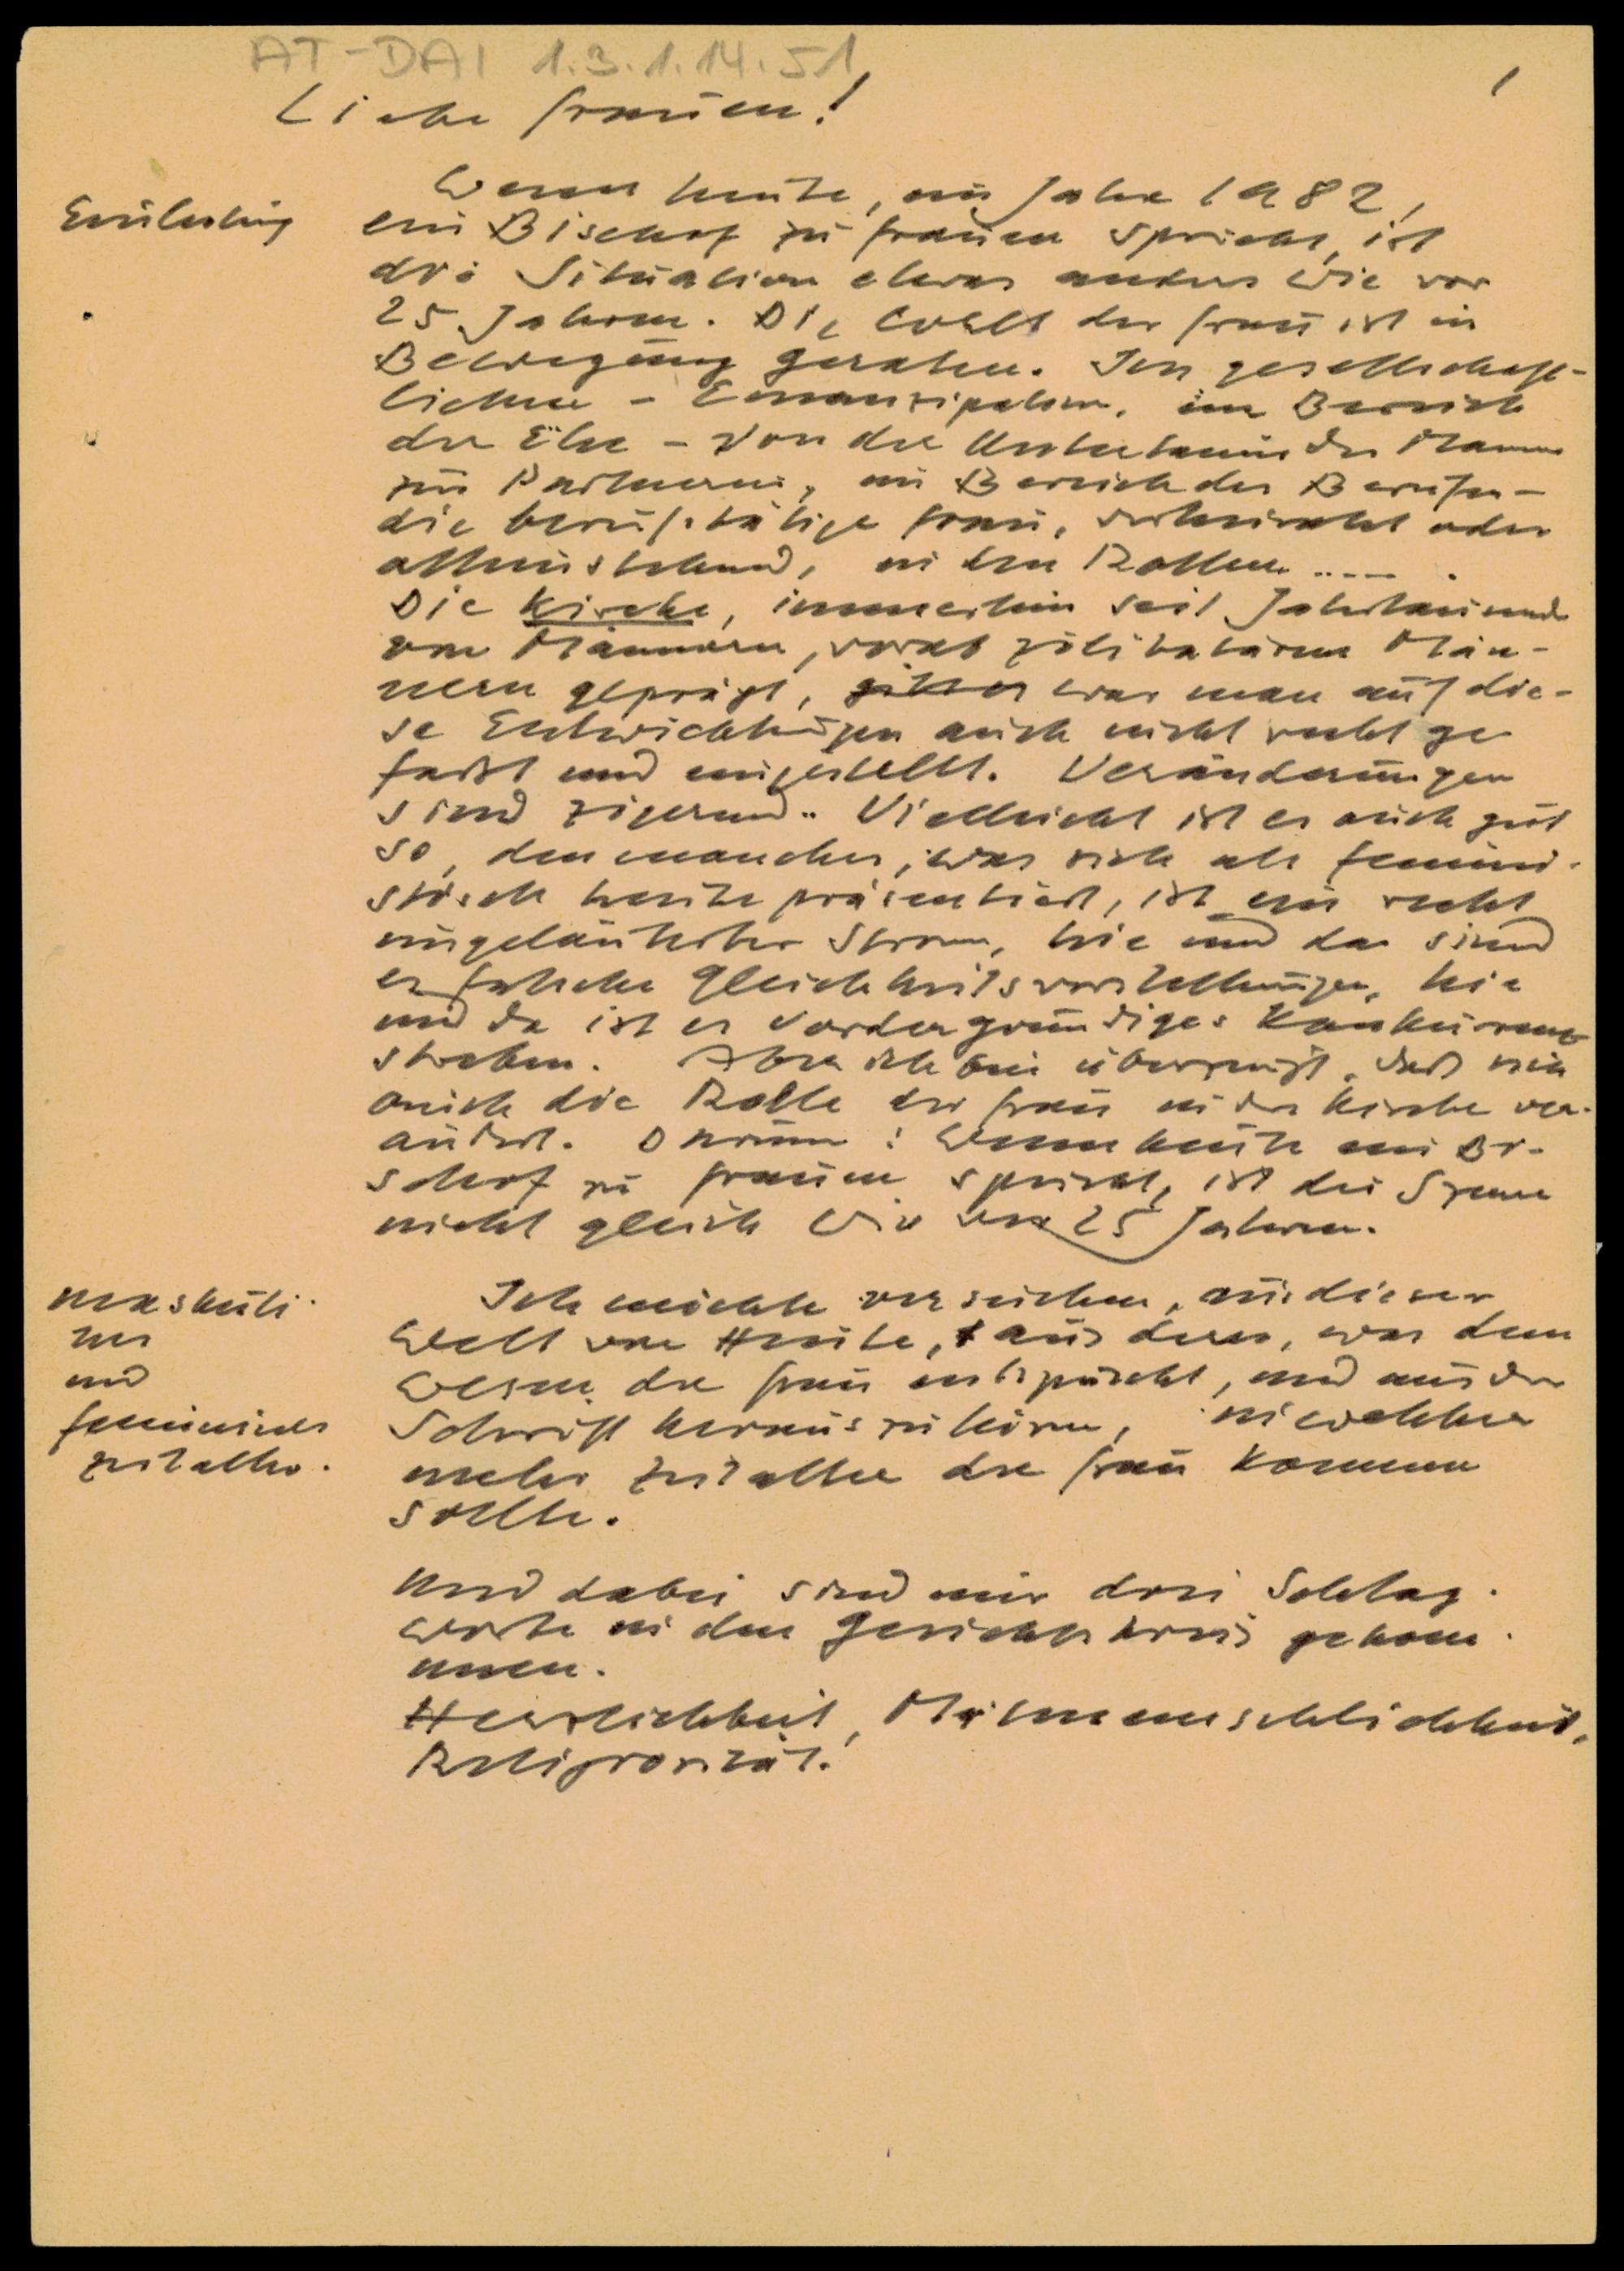 AT-DAI 1.3.1.14.51
1
Liebe Frauen!
Einleitung
Wenn heute, im Jahre 1982,
ein Bischof zu Frauen spricht, ist
die Situation etwas anders wie vor
25 Jahren. Die Welt der Frau ist in
Bewegung geraten. Im gesellschaft-
lichen - Emanzipation, im Bereich
der Ehe - von der Untertanin des Mannes
zur Partnerin, im Bereich des Berufes -
die berufstätige Frau, verheiratet oder
alleinstehend, in den Rollen ....
Die Kirche, immerhin seit Jahrtausend
von Männern, vorab zölibatären Män-
nern geprägt, war man auf die-
se Entwicklungen auch nicht recht ge
faßt und eingestellt. Veränderungen
sind zögernd.. Vielleicht ist es auch gut
so, den manches, was sich als femini-
stisch heute präsentiert, ist ein recht
ungeläuterter Strom, hie und da sind
es falsche Gleichheitsvorstellungen, hie
und da ist es vordergründiges Konkurrenz
streben. Aber ich bin überzeugt, daß sich
auch die Rolle der Frau in der Kirche ver-
ändert. Darum: Wenn heute ein Bi-
schof zu Frauen spricht, ist die Szene
nicht gleich wie vor 25 Jahren.
maskuli-
nes
und
feminines
Zeitalter.
Ich möchte versuchen, aus dieser
Welt von Heute, aus dem, was dem
Wesen der Frau entspricht, und aus der
Schrift herauszuhören, in welcher
mehr Zeitalter der Frau kommen
sollte.
Und dabei sind mir drei Schlag-
worte in den Gesichtskreis gekom-
men.
Herzlichkeit, Mitmenschlichkeit,
Religiosität!